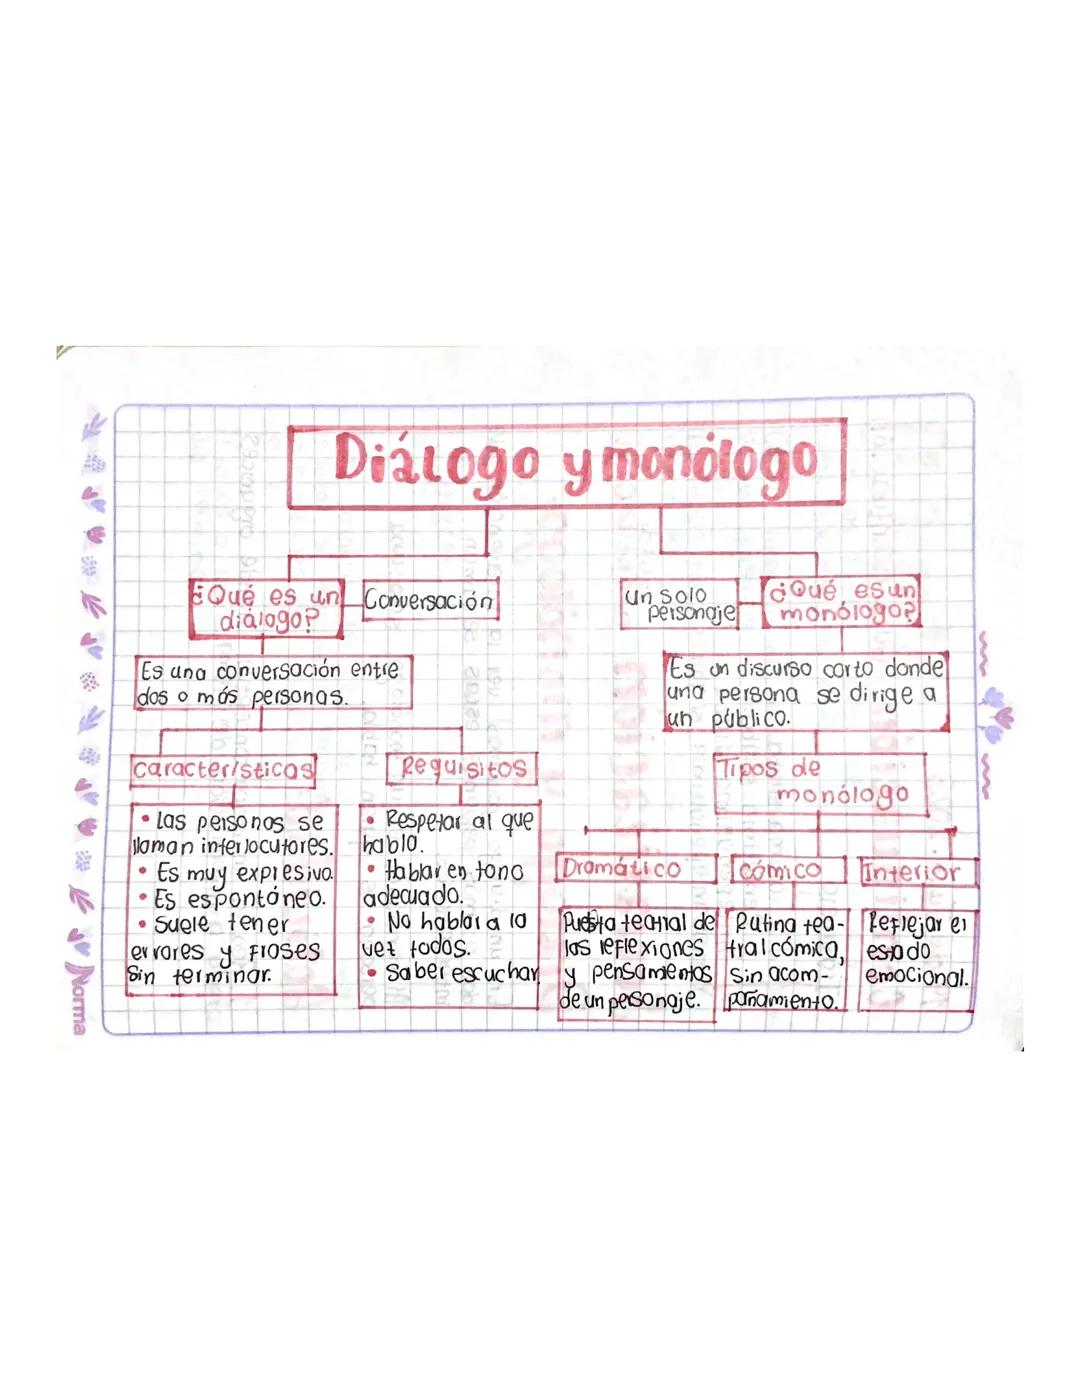 Diálogo y monólogo
¿Qué es un
diálogo?
Conversación
Es una conversación entre
dos o más personas.
Características
• Las personas se
llaman interlocutores.
• Es muy expresiva
• Es espontáneo.
• Suele tener
errores y frases
sin terminar.
Requisitos
• Respetar al que
habla.
• Hablar en tono
adecuado.
• No hablar a la
vez todos.
• Saber escuchar
un solo
personaje
¿Qué es un
monólogo?
Es un discurso corto donde
una persona se dirige a
un público.
Tipos de
monólogo
Dramático
Puesta teatral de
las reflexiones
y pensamientos
de un personaje.
Cómico
Rutina tea-
tral cómica,
sin acom-
pañamiento.
Interior
Reflejar el
estado
emocional.
Norma